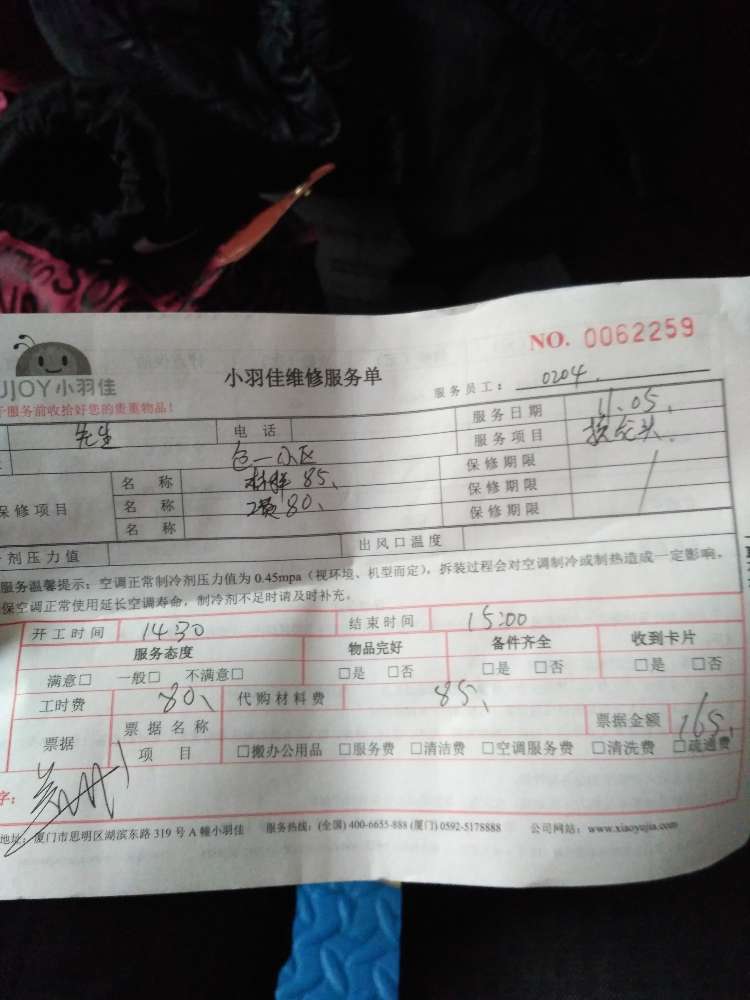 NO. 0062259
UJOY小羽佳
小羽佳维修服务单
服务员工： 0204
服务前收拾好您的贵重物品！
先生 电 话 服务日期 11.05
包一小区 服务项目 换龙头
保修项目 名 称 材料 85 保修期限
名 称 工费 80 保修期限
名 称 保修期限
剂压力值 出风口温度
服务温馨提示：空调正常制冷剂压力值为 0.45mpa（视环境、机型而定），拆装过程会对空调制冷或制热造成一定影响，
保空调正常使用延长空调寿命，制冷剂不足时请及时补充。
开工时间 14:30 结束时间 15:00
服务态度 物品完好 备件齐全 收到卡片
满意□ 一般□ 不满意□ □是 □否 □是 □否 □是 □否
工时费 80 代购材料费 85
票据 票据名称 票据金额 165
项 目 □搬办公用品 □服务费 □清洁费 □空调服务费 □清洗费 □疏通费
字：
地址：厦门市思明区湖滨东路 319 号 A 幢小羽佳 服务热线：(全国) 400-6655-888 (厦门) 0592-5178888 公司网站：www.xiaoyujia.com